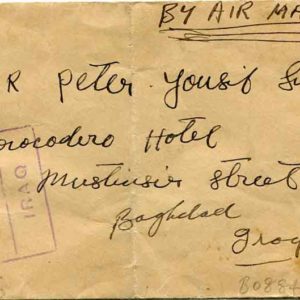 BY AIR MA
R Peter Yousif Su
rocodero Hotel
Mustinsir Street
Baghdad
Iraq
IRAQ
B0884